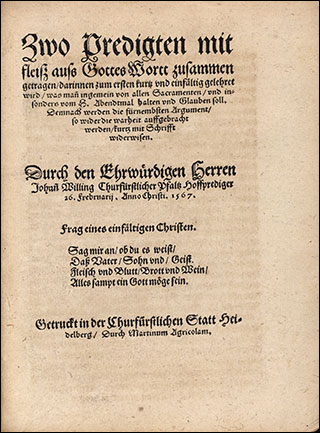 Zwo Predigten mit
fleisz auss Gottes Wortt zusammen
getragen / darinnen zum ersten kurtz vnd einfältig gelehret
wird / was mañ ingemein von allen Sacramenten / vnd in-
sonders vom H. Abendtmal halten vnd Glauben soll.
Demnach werden die fürnembsten Argument /
so wider die warheit auffgebracht
werden / kurtz mit Schrifft
widerwisen.
Durch den Ehrwürdigen Herren
Johañ Willing Churfürstlicher Pfaltz Hoffprediger
26. Februarij. Anno Christi. 1567.
Frag eines einfältigen Christen.
Sag mir an / ob du es weist /
Daß Vater / Sohn vnd / Geist.
Fleisch vnd Blutt / Brott vnd Wein /
Alles sampt ein Gott möge sein.
Getruckt in der Churfürstlichen Statt Hei-
delberg / Durch Martinum Agricolam.